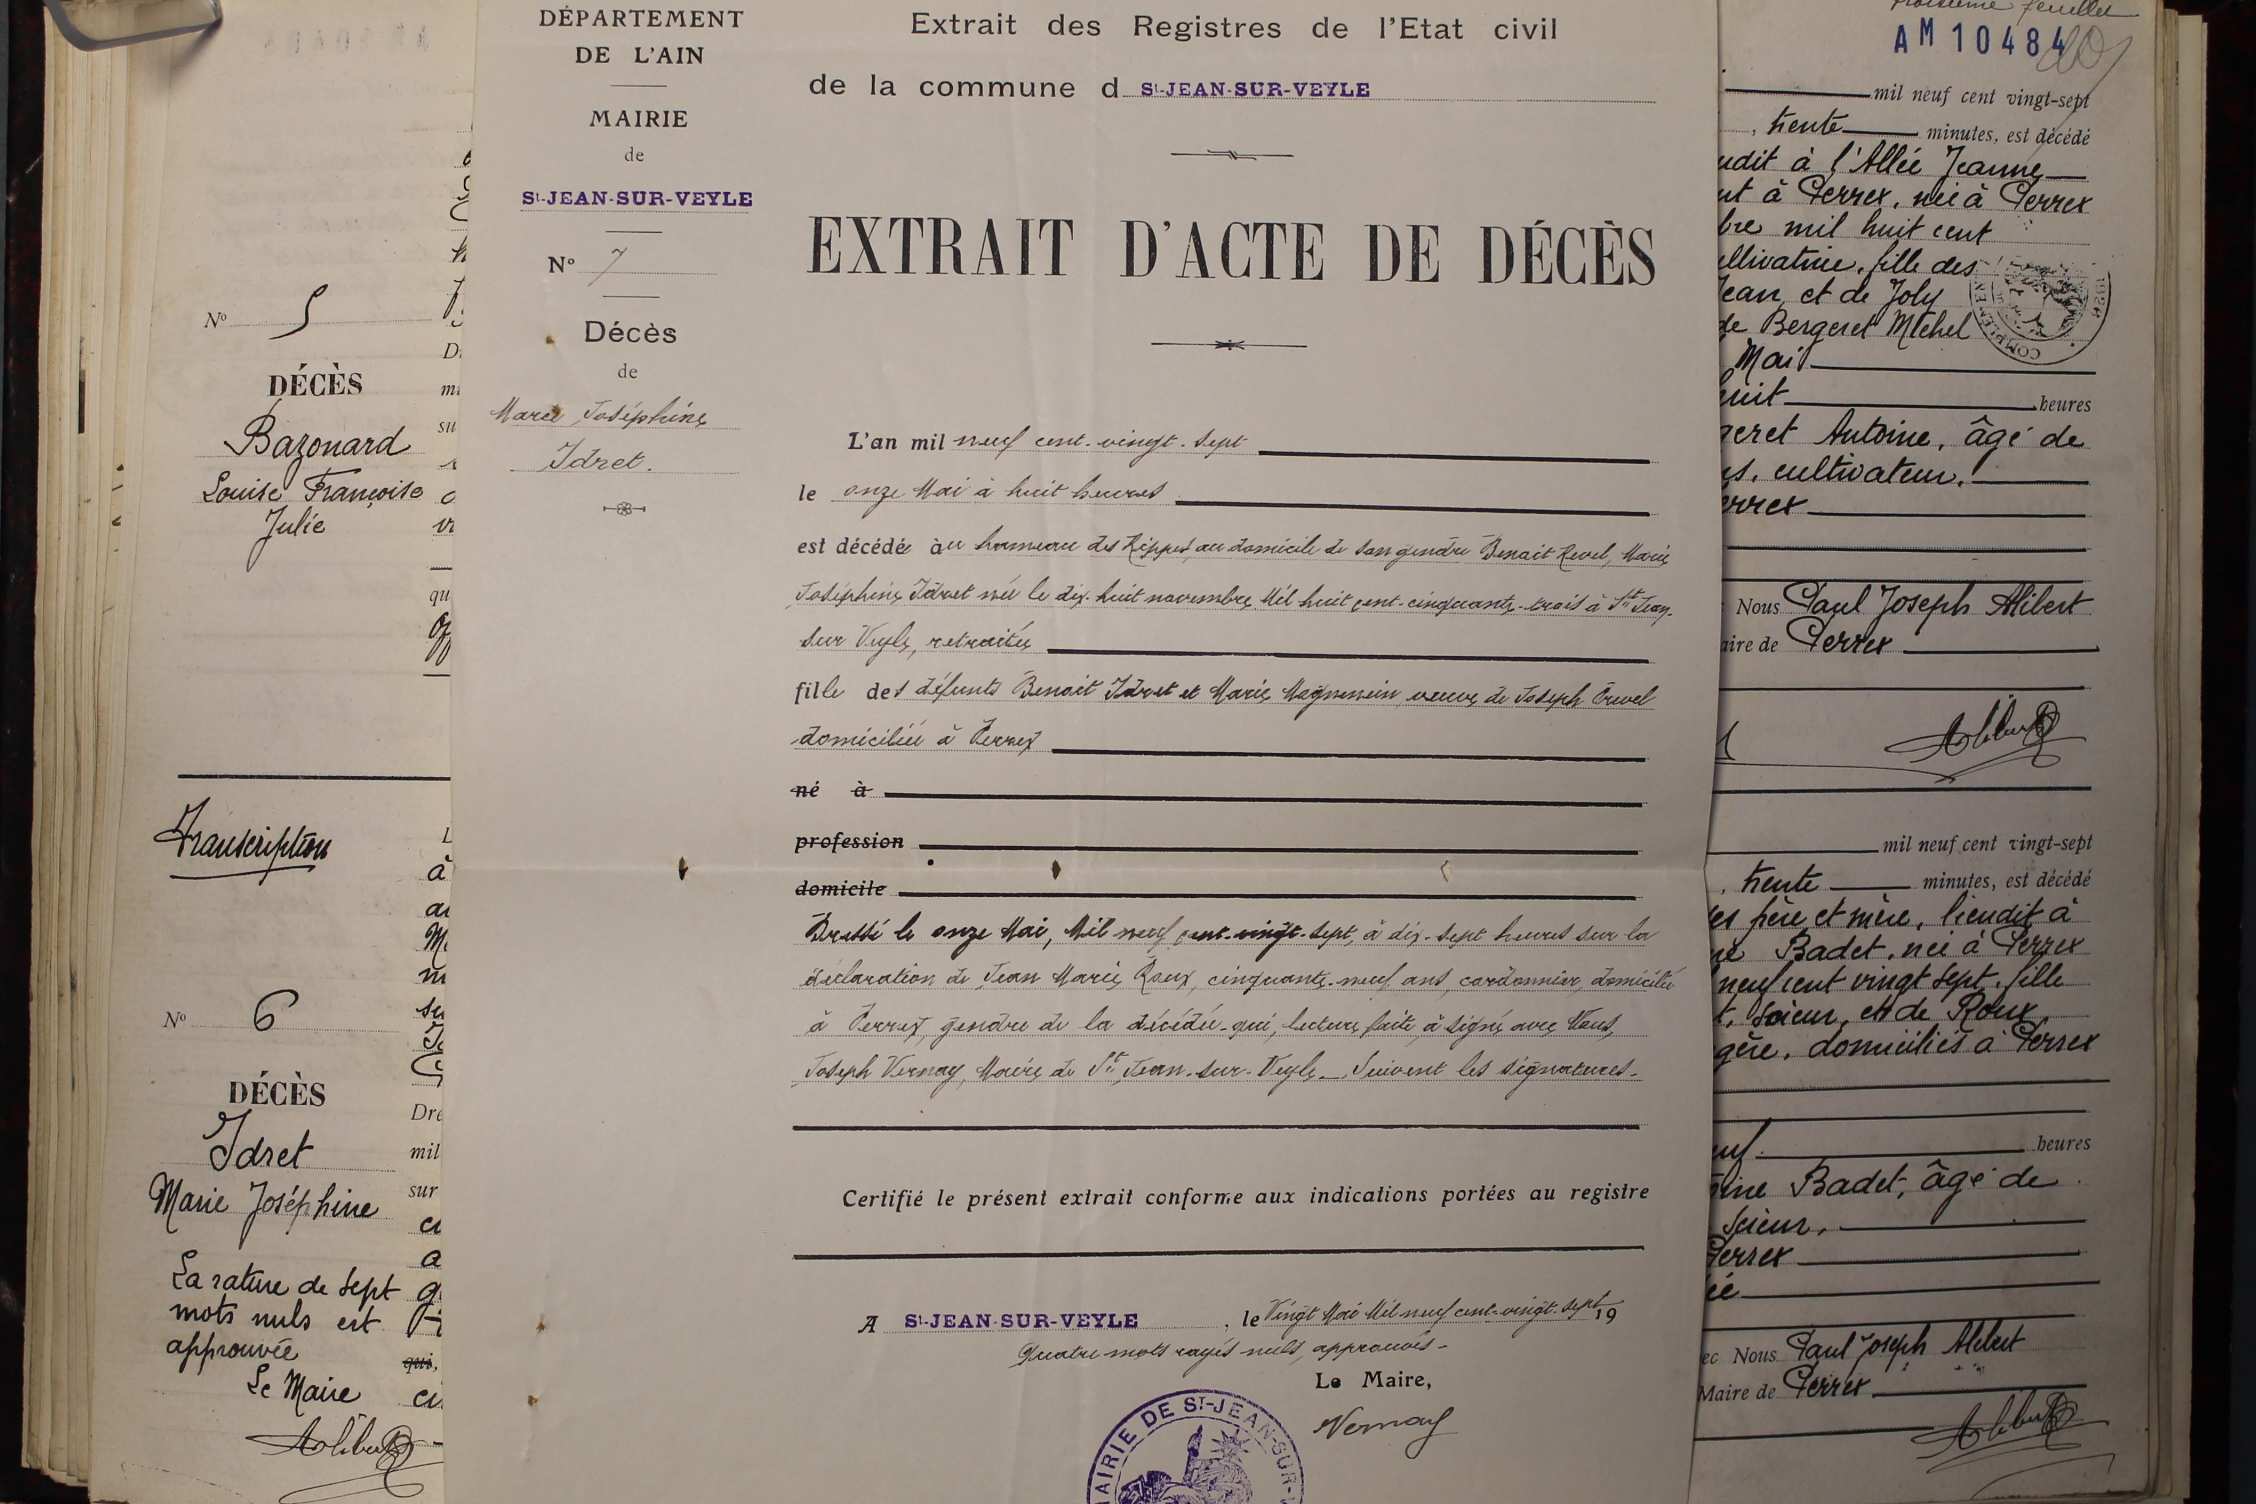 Nº 5
DÉCÈS
Bazonard
Louise Françoise
Julie
Transcription
Nº 6
DÉCÈS
Idret
Marie Joséphine
La rature de sept
mots nuls est
approuvée
Le Maire
Alibert
DÉPARTEMENT
DE L'AIN
MAIRIE
de
St-JEAN-SUR-VEYLE
Nº 7
Décès
de
Marie Joséphine
Idret.
Extrait des Registres de l'Etat civil
de la commune d St-JEAN-SUR-VEYLE
EXTRAIT D'ACTE DE DÉCÈS
L'an mil neuf cent-vingt-sept
le onze Mai à huit heures
est décédée au hameau des Rippes, au domicile de son gendre Benoit Revel, Marie
Joséphine Idret née le dix-huit novembre Mil huit cent-cinquante-trois à St Jean-
sur Veyle, retraitée
fille des défunts Benoit Idret et Marie Magnenein, veuve de Joseph Crevel
domiciliée à Perrex
né à
profession
domicile
Dressé le onze Mai, Mil neuf cent-vingt-sept, à dix-sept heures sur la
déclaration de Jean Marie Roux, cinquante-neuf ans, cordonnier, domicilié
à Perrex, gendre de la décédée-qui, lecture faite, a signé avec Nous,
Joseph Vernay, Maire de St Jean-sur-Veyle_ Suivent les signatures-
Certifié le présent extrait conforme aux indications portées au registre
A St-JEAN-SUR-VEYLE, le Vingt Mai Mil neuf cent-vingt-sept 19
Quatre mots rayés nuls, approuvés-
Le Maire,
Vernay
MAIRIE DE ST-JEAN-SUR-
troisième feuillet
AM 10484
mil neuf cent vingt-sept
, trente minutes, est décédé
udit à l'Allée Jeanne
nt à Perrex, née à Perrex
bre mil huit cent
ultivatrice, fille des
Jean, et de Joly
de Bergeret Michel
Mai
huit heures
geret Antoine, âgé de
ns, cultivateur,
errex
Nous Paul Joseph Alibert
aire de Perrex
Alibert
mil neuf cent vingt-sept
, trente minutes, est décédé
es père et mère, lieudit à
ne Badet, née à Perrex
neuf cent vingt sept, fille
t, scieur, et de Roux,
gère, domiciliés à Perrex
euf heures
ine Badet, âgé de
scieur,
Perrex
ec Nous Paul Joseph Alibert
Maire de Perrex
Alibert